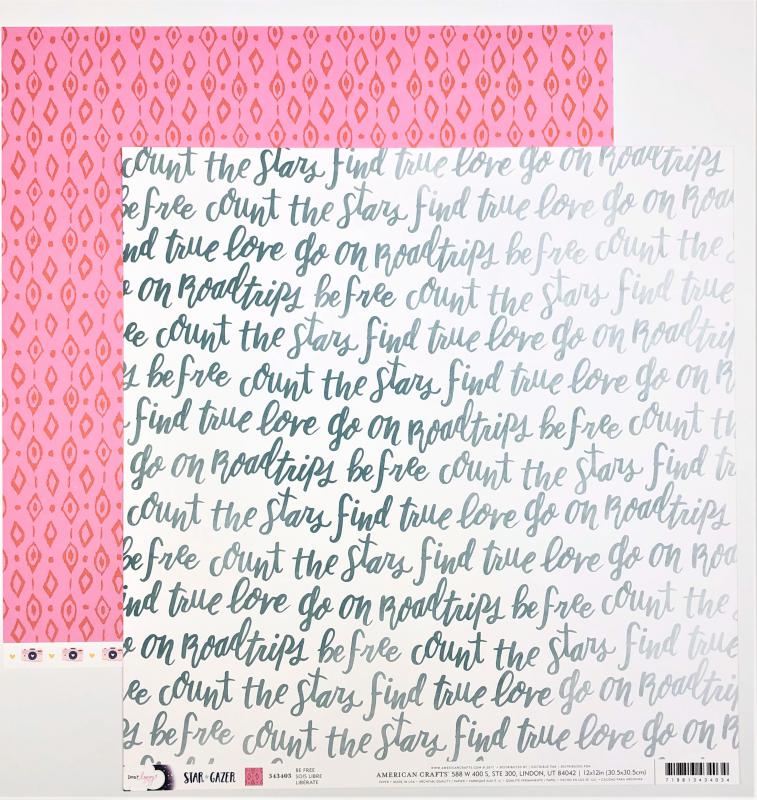 count the stars find true love go on Roadtrips
be free count the stars find true love go on Roa
nd true love go on Roadtrips be free count the s
o on Roadtrips be free count the stars find true
ee count the stars find true love go on Roadtri
s be free count the stars find true love go on R
find true love go on Roadtrips be free count th
go on Roadtrips be free count the stars find tr
count the stars find true love go on Roadtrips
be free count the stars find true love go on Roa
ind true love go on Roadtrips be free count the s
o on Roadtrips be free count the stars find true
ee count the stars find true love go on Roadtri
s be free count the stars find true love go on R
STAR GAZER
343403
BE FREE
SOIS LIBRE
LIBÉRATE
AMERICAN CRAFTS 588 W 400 S, STE 300, LINDON, UT 84042 | 12x12in (30.5x30.5cm)